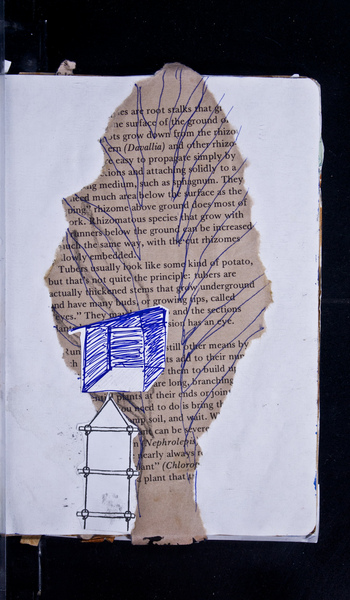 es are root stalks that g
he surface of the ground o
ots grow down from the rhizo
ern (Davallia) and other rhizo
e easy to propagate simply by
ions and attaching solidly to a
ng medium, such as sphagnum. They
need much area below the surface as the
ning" rhizome above ground does most of
ork. Rhizomatous species that grow with
unners below the ground can be increased
uch the same way, with the cut rhizomes
lowly embedded.
Tubers usually look like some kind of potato,
but that's not quite the principle: tubers are
actually thickened stems that grow underground
and have many buds, or growing tips, called
eyes." They may and the sections
plan sion has an eye.
Run still other means by
ts add to their num
them to build u
are long, branching
plants at their ends or join
you need to do is bring th
mp soil, and wait.
ant can be seve
(Nephrolepi
nearly always
ant" (Chloro
plant that